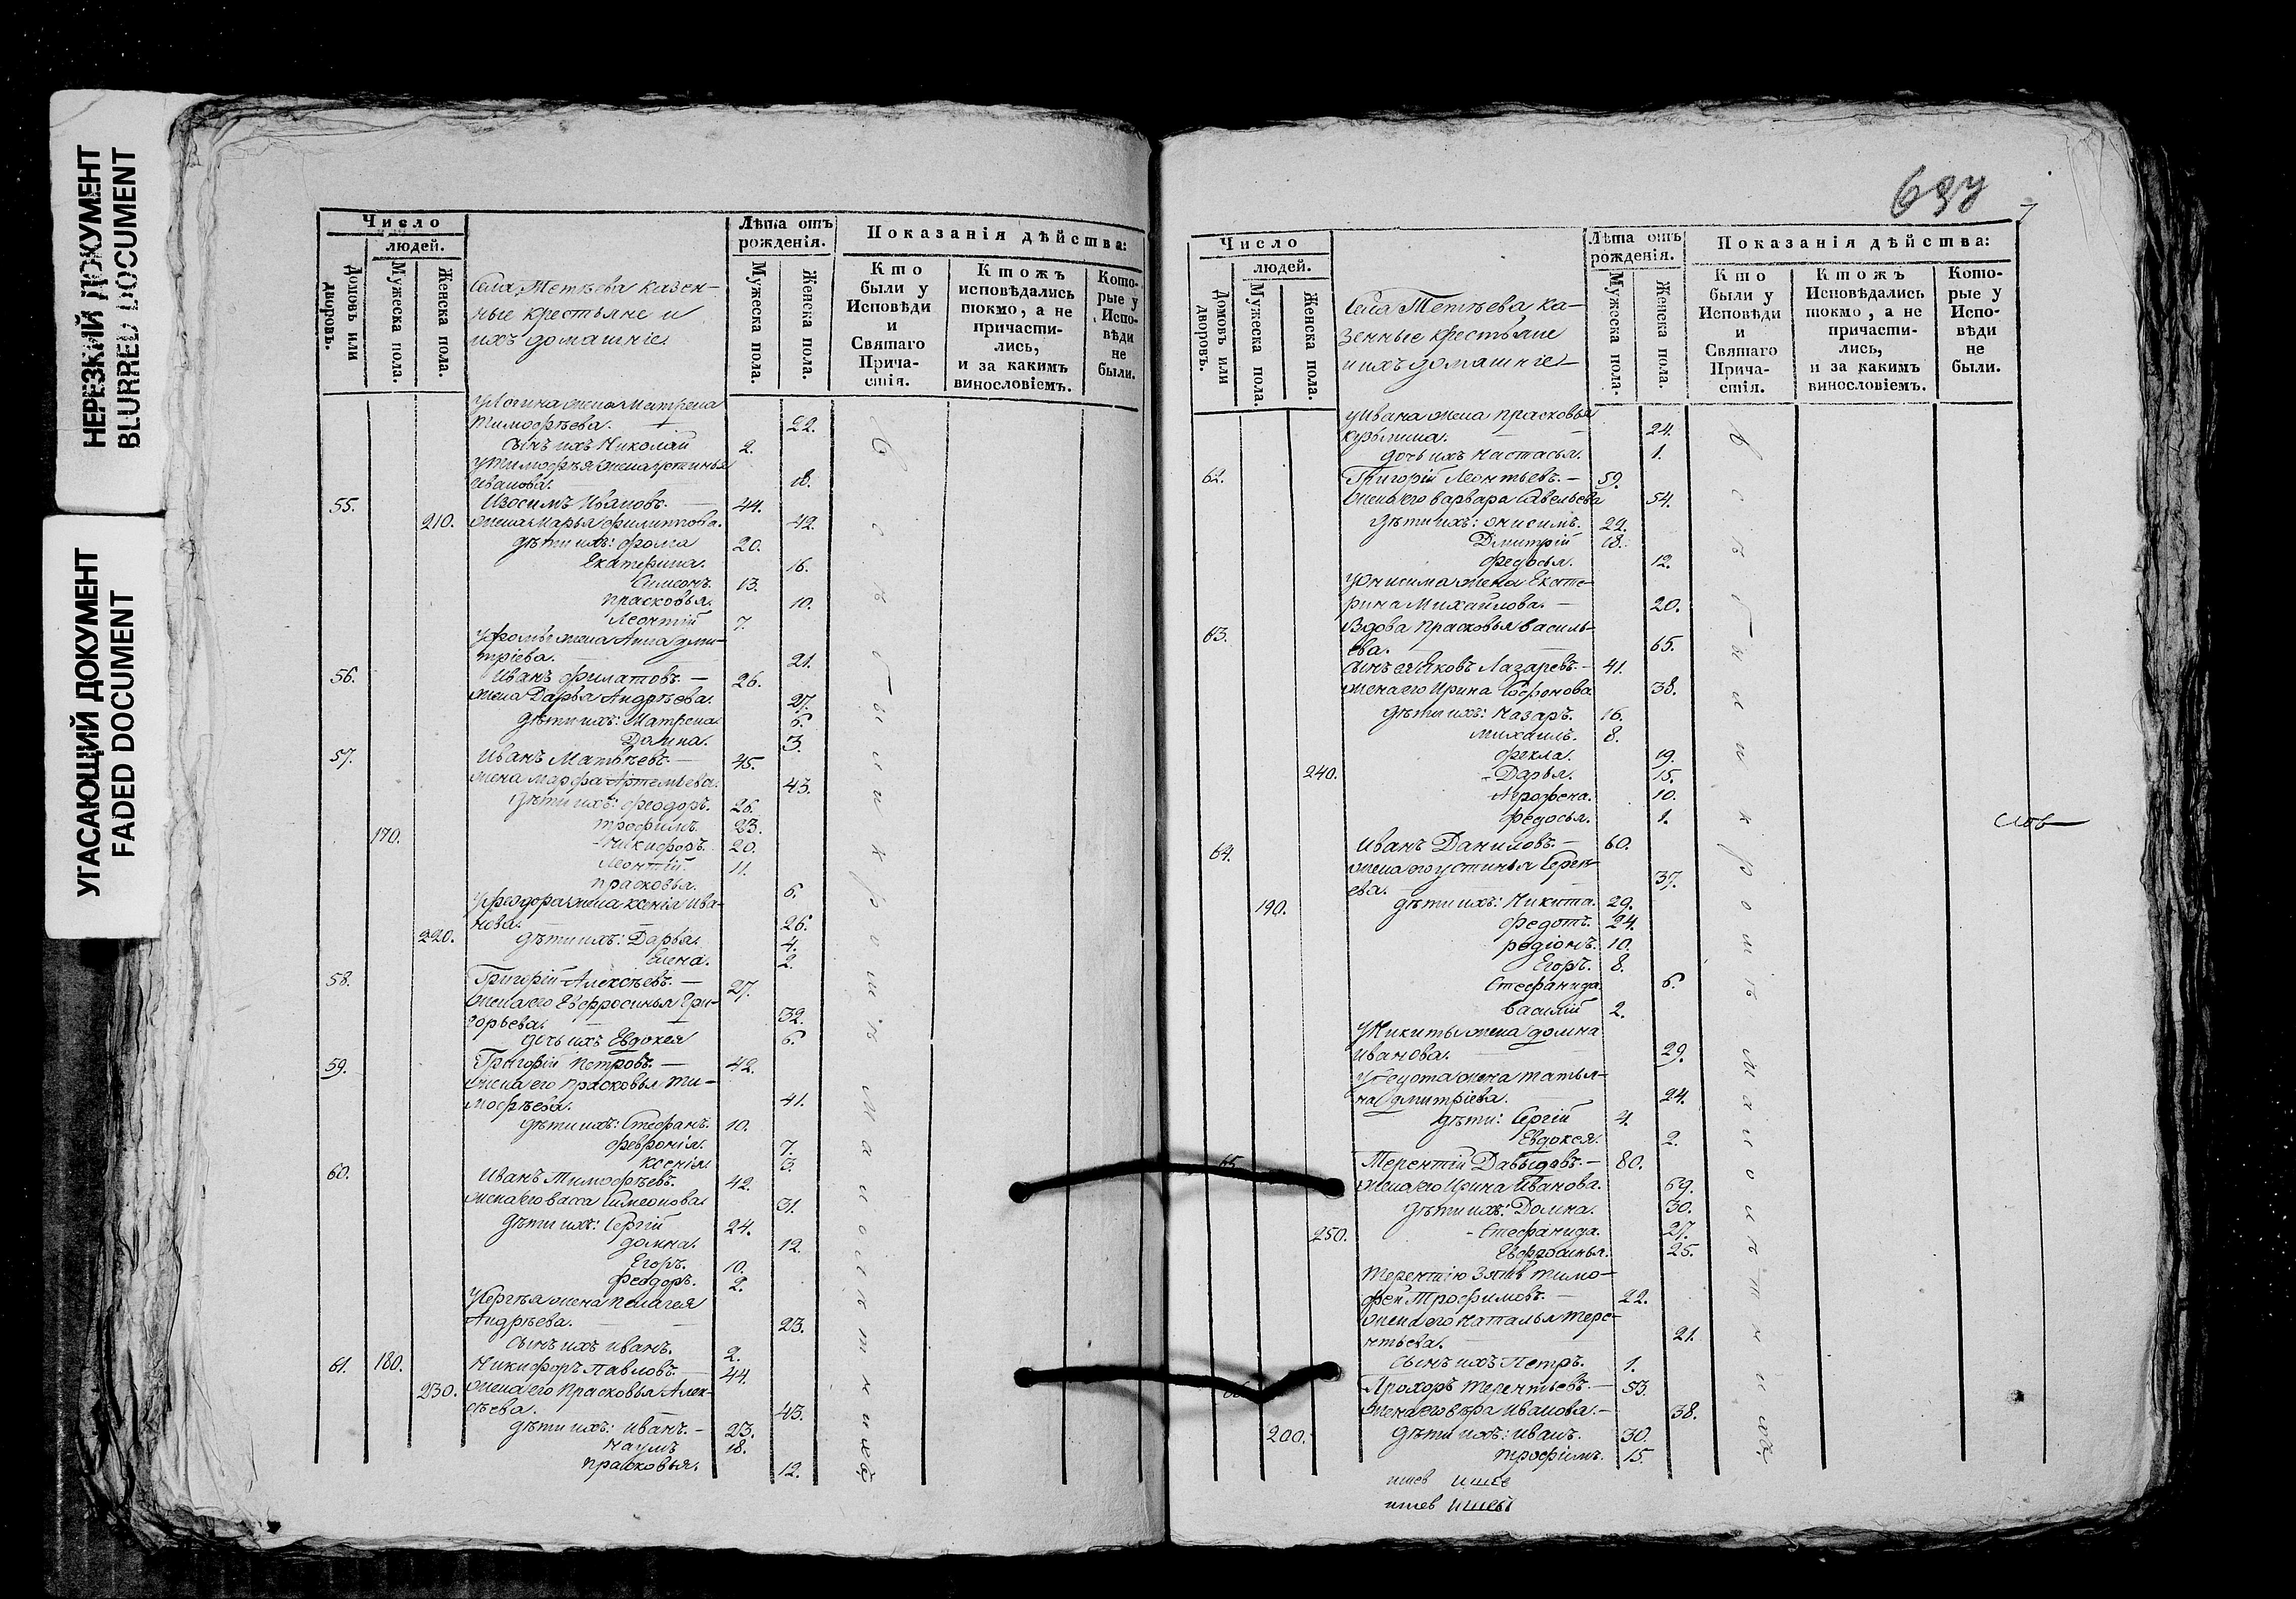 НЕРЕЗКИЙ ДОКУМЕНТ
BLURRED DOCUMENT
УГАСАЮЩИЙ ДОКУМЕНТ
FADED DOCUMENT
Число
людей.
Домовъ или дворовъ.
Мужеска пола.
Женска пола.
Села Тетѣева казен-
ные крестьяне и
ихъ домашніе
Лѣта отъ рожденія.
Мужеска пола.
Женска пола.
Показанія дѣйства:
Кто были у Исповѣди и Святаго Прича-стія.
Ктожъ исповѣдались токмо, а не причасти-лись, и за какимъ винословіемъ.
Кото-рые у Испо-вѣди не были.
У Логина жена Матрена
Тимофѣева. 22.
сынъ ихъ Николай 2.
У Тимофѣя жена Устинья
Иванова. 18.
55. Изосимъ Ивановъ. 44.
210. жена Марья Филиппова. 42.
дѣти ихъ: Фома 20.
Екатерина. 16.
Симеонъ. 13.
Прасковья. 10.
Леонтій 7.
У Фомы жена Анна Дми-
тріева. 21.
56. Иванъ Филатовъ. 26.
жена Дарья Андрѣева. 27.
дѣти ихъ: Матрена. 6.
Домна. 3.
57. Иванъ Матвѣевъ. 45.
жена Марфа Артемьева. 43.
дѣти ихъ: Феодоръ. 26.
170. Трофимъ. 23.
Никифоръ. 20.
Леонтій. 11.
Прасковья. 6.
У Феодора жена Ксенія Ива-
нова. 26.
220. дѣти ихъ: Дарья. 4.
Елена. 2.
58. Григорій Алексѣевъ. 27.
жена его Евфросинья Гри-
горьева. 32.
дочь ихъ Евдокея 6.
59. Григорій Петровъ. 42.
жена его Прасковья Ти-
мофѣева. 41.
дѣти ихъ: Стефанъ. 10.
Февронія. 7.
Ксенія 3.
60. Иванъ Тимофѣевъ. 42.
жена его Васса Симеонова. 31.
дѣти ихъ: Сергій 24.
Домна. 12.
Егоръ. 10.
Феодоръ. 2.
У Сергѣя жена Пелагея
Андрѣева. 23.
сынъ ихъ Иванъ. 2.
61. 180. Никифоръ Павловъ. 44.
230. жена его Прасковья Алек-
сѣева. 43.
дѣти ихъ: Иванъ. 23.
Наумъ 18.
Прасковья. 12.
637
Число
людей.
Домовъ или дворовъ.
Мужеска пола.
Женска пола.
Села Тетѣева ка-
зенные крестьяне
и ихъ домашніе
Лѣта отъ рожденія.
Мужеска пола.
Женска пола.
Показанія дѣйства:
Кто были у Исповѣди и Святаго Прича-стія.
Ктожъ Исповѣдались токмо, а не причасти-лись, и за какимъ винословіемъ.
Кото-рые у Испо-вѣди не были.
У Ивана жена Прасковья
Кузьмина. 24.
дочь ихъ Настасья. 1.
62. Григорій Леонтьевъ. 59.
жена его Варвара Савельева 54.
дѣти ихъ: Онисимъ. 22.
Дмитрій 18.
Федосья. 12.
У Онисима жена Екате-
рина Михайлова. 20.
63. Вдова Прасковья Василь-
ева. 65.
сынъ ея Яковъ Лазаревъ. 41.
жена его Ирина Софронова. 38.
дѣти ихъ: Назаръ. 16.
Михаилъ. 8.
Фекла. 19.
240. Дарья. 15.
Агрофена. 10.
Федосья. 1.
64. Иванъ Даниловъ. 60.
жена его Устинья Серге-
ева. 37.
190. дѣти ихъ: Никита. 29.
Федотъ. 24.
Родіонъ. 10.
Егоръ. 8.
Стефанида. 6.
Василій 2.
У Никиты жена Домна
Иванова. 29.
У Федота жена Татья-
на Дмитріева. 24.
дѣти: Сергій 4.
Евдокея. 2.
65. Терентій Давыдовъ. 80.
жена его Ирина Иванова. 69.
дѣти ихъ: Домна. 30.
250. Стефанида. 27.
Евфросинья. 25.
Терентію зять Тимо-
фей Трофимовъ. 22.
жена его Наталья Тере-
нтьева. 21.
сынъ ихъ Петръ. 1.
66. Прохоръ Терентьевъ. 53.
жена его Вѣра Иванова. 38.
200. дѣти ихъ: Иванъ. 30.
Трофимъ. 15.